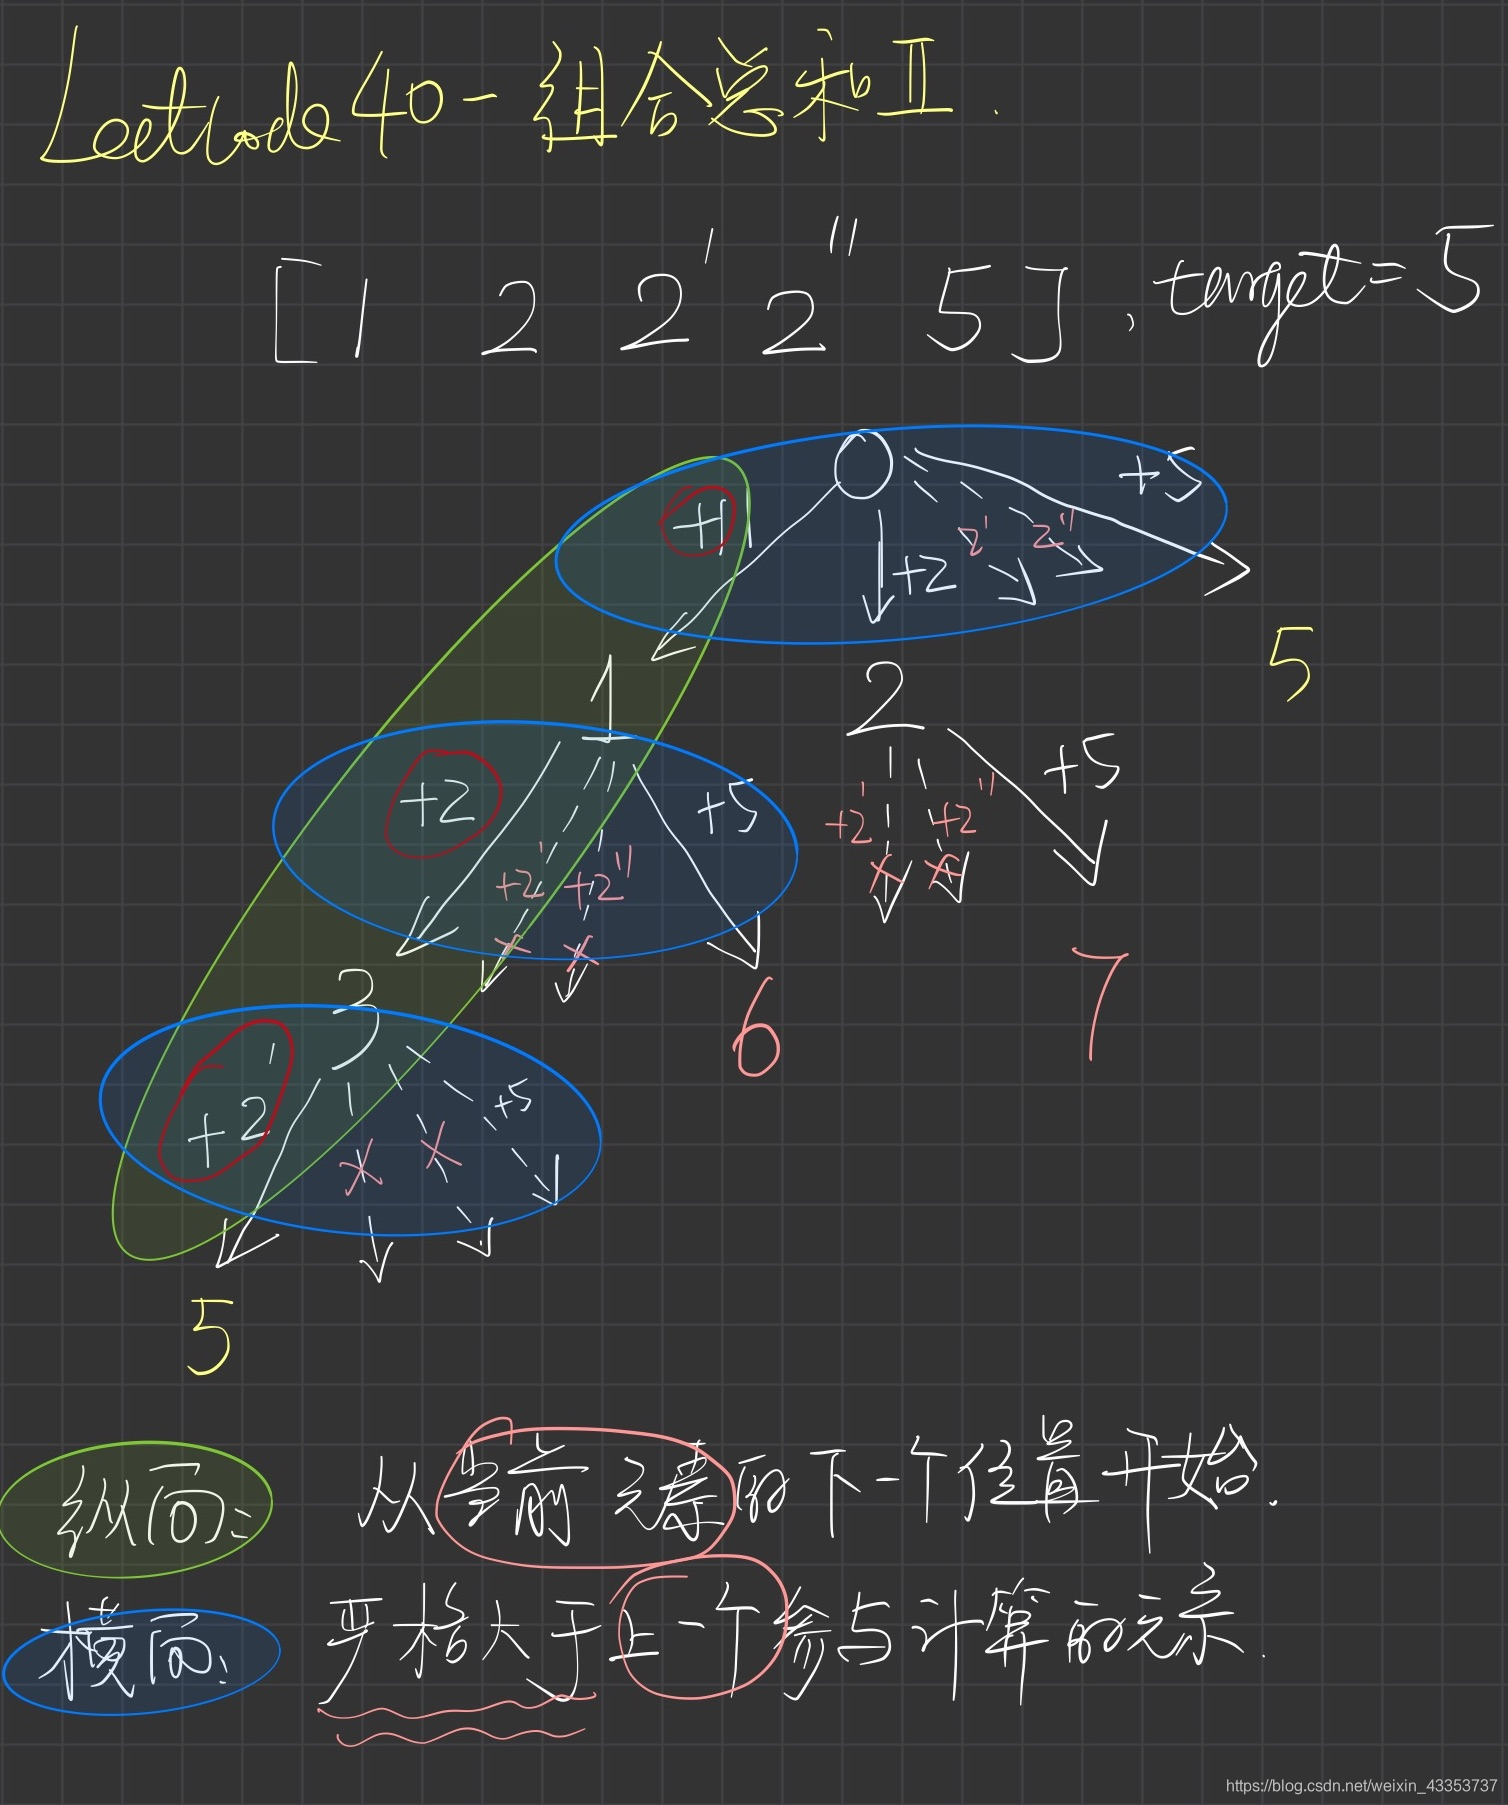 Leetcode 40 - 组合总和 II.
[1 2 2' 2'' 5], target = 5
0
+1 +2 2' 2'' +5
1 2 5
+2 +2' +2'' +5 +2' +2'' +5
3 6 7
+2' × × +5
5
纵向: 从当前元素的下一个位置开始.
横向: 严格大于上一个参与计算的元素.
https://blog.csdn.net/weixin_43353737